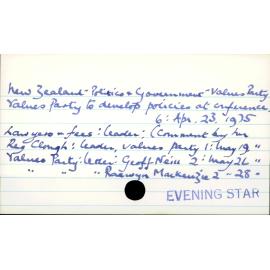 New Zealand - Politics & Government - Values Party
Values Party to develop policies at conference
6: Apr. 23, 1975
Lawyers - fees: leader: (Comment by Mr
Reg Clough: leader, values party 1: May 19 "
Values Party: letter: Geoff Neill 2: May 26 "
" " " Raewyn Mackenzie 2 - 28 -
EVENING STAR